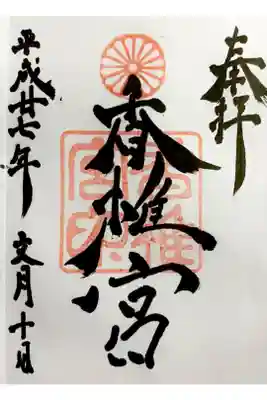 奉拝
香椎宮
平成廿七年 文月十日